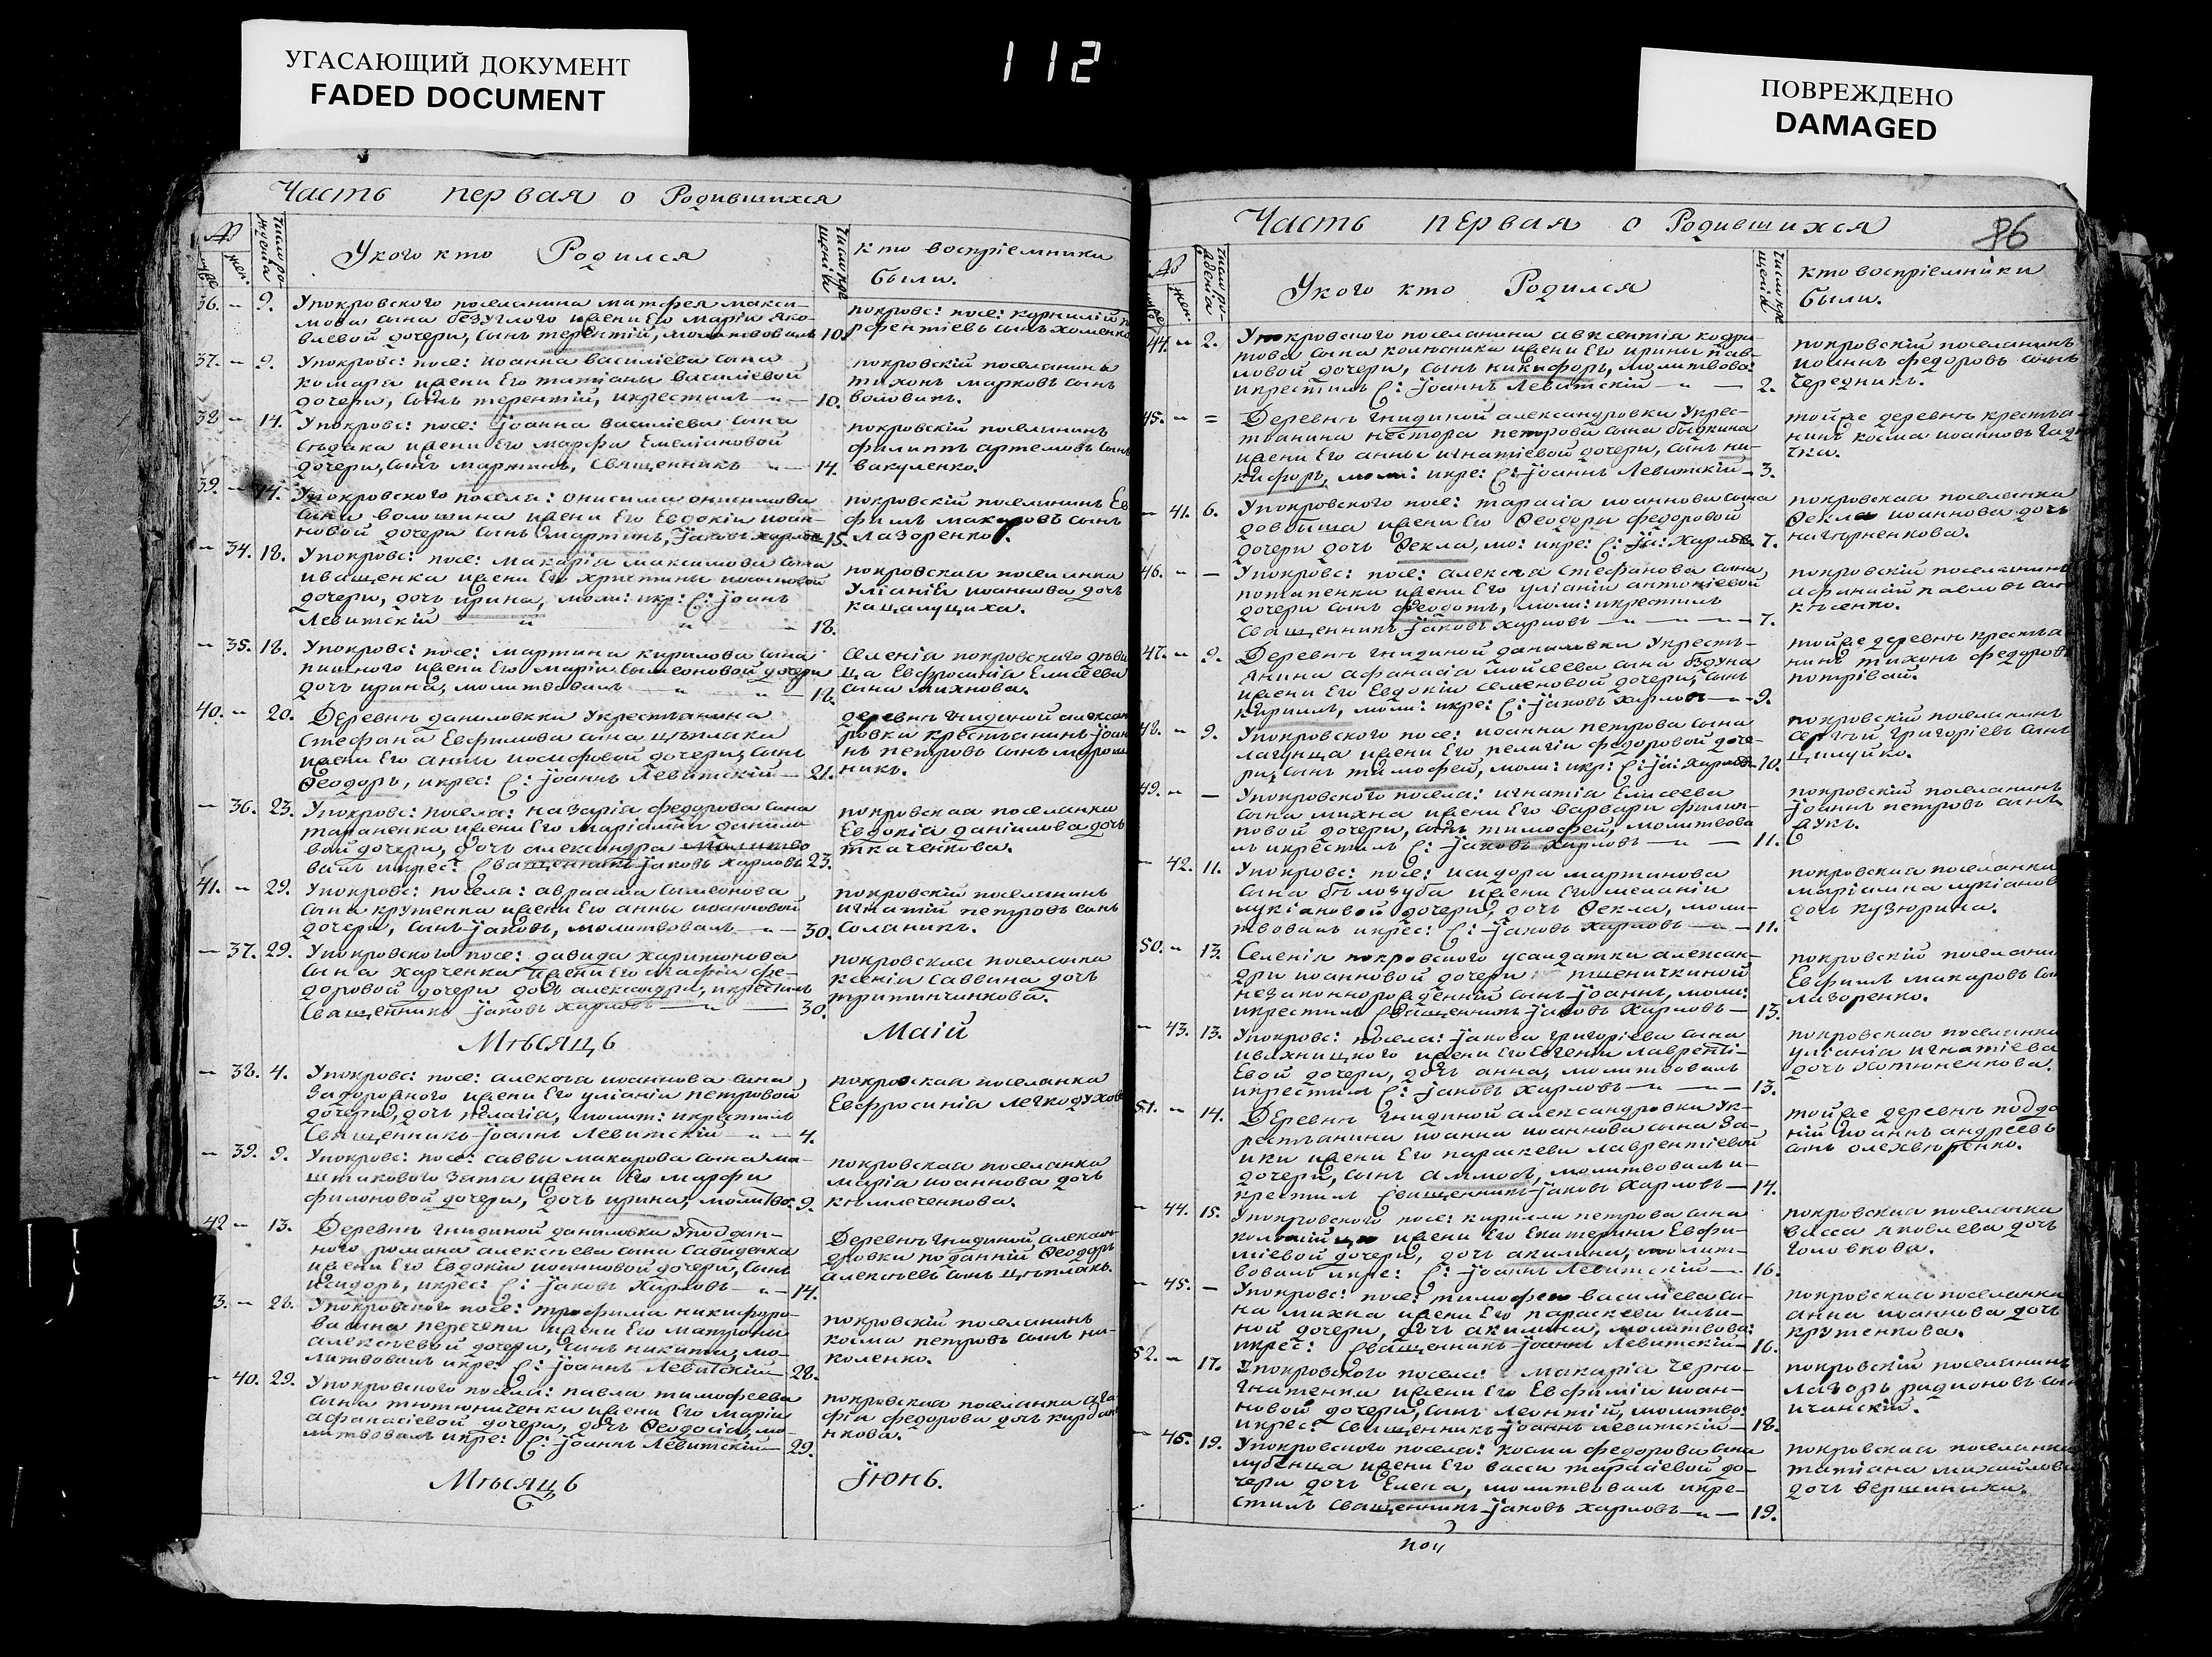 УГАСАЮЩИЙ ДОКУМЕНТ
FADED DOCUMENT
112
ПОВРЕЖДЕНО
DAMAGED
Часть первая о Родившихся
У кого кто Родился
кто воспріемники
были.
36. - 9. Упокровского поселянина матфея макси-
мова сына безуглого жени Его маріи яко-
влевой дочери, сынъ терентій, молитвовалъ 10.
покровс: посе: корнилій
рофентіевъ сынъ хоменко
37. - 9. Упокровс: посе: иоанна василіева сына
комара жени Его татіаны василіевой
дочери, сынъ терентій, икрестилъ - 10.
покровскій поселянинъ
тихонъ марковъ сынъ
воловикъ.
38 - 14. Упокровс: посе: іоанна василіева сына
жени Его марфи Емеліановой
дочери, сынъ мартинъ, Священникъ - 14.
покровскій поселянинъ
филиппъ артемовъ сынъ
вакуленко.
39. - 14. Упокровского посела: онисима онисимова
сына волошина жени Его Евдокіи иоан-
новой дочери сынъ мартинъ, Іаковъ харловъ 15.
покровскій поселянинъ Ев
фимъ макаровъ сынъ
Лазоренко.
- 34. 18. Упокровс: посе: макарія максимова сына
иващенка жени Его христины иоанновой
дочери, дочъ ирина, моли: икр: С: іоаннъ
Левитскій - 18.
покровская поселянка
Уліанія иоаннова дочъ
кащалущиха.
- 35. 18. Упокровс: посе: мартина кирилова сына
пишного жени Его маріи Симеоновой дочери
дочъ ирина, молитвовалъ - 18.
Селенія покровского дѣви
ца Евфросинія Елисеева
сына михнова.
40. - 20. Деревнѣ даниловкы Украстьянина
Стефана Евфимова сына цѣплака
жени Его анны иосифовой дочери, сынъ
Ѳеодоръ, икрес: С: іоаннъ Левитскій - 21.
деревнѣ гнидиной алексан
ровки крестьанинъ іоан
нъ петровъ сынъ мирош
никъ.
- 36. 23. Упокровс: посела: назарія федорова сына
тараненка жени Его маріамны данило
вой дочери, дочъ александра молитво
валъ икрес: Священникъ Іаковъ харловъ 23.
покровская поселянка
Евдокія даніилова дочъ
ткаченкова.
41. - 29. Упокровс: посела: авраама Симеонова
сына крутенка жени Его анны иоанновой
дочери, сынъ Іаковъ, молитвовалъ - 30.
покровскій поселянинъ
игнатій петровъ сынъ
Соланикъ.
- 37. 29. Упокровского посе: давида харитонова
сына харченка жени Его агафіи фе-
доровой дочери дочъ александра, икрестилъ
Священникъ Іаковъ харловъ - 30.
покровская поселянка
ксенія Саввина дочъ
тритинчинкова.
Мѣсяцъ Маій
- 38. 4. Упокровс: посе: алексѣя иоаннова сына
Задорожного жени Его уліаніи петровой
дочери, дочъ пелагія, молит: икрестилъ
Священникъ Іоаннъ Левитскій - 4.
покровская поселянка
Евфросинія легкодухов
- 39. 9. Упокровс: посе: саввы макарова сына ма-
штакового зятя жени Его марфи
филоновой дочери, дочъ ирина, молитво: 9.
покровская поселянка
марія иоаннова дочъ
климеченкова.
42 - 13. Деревнѣ гнидиной даниловки Уподдан-
ного романа алексѣева сына Савиденка
жени Его Евдокіи иоанновой дочери, сынъ
исидоръ, икрес: С: Іаковъ Харловъ - 14.
Деревнѣ гнидиной алексан-
дровки поданній Ѳеодоръ
алексѣевъ сынъ цѣплакъ.
3. - 28. Упокровского посе: трофима никифоро-
ва сына перечепи жени Его матроны
алексѣевой дочери, сынъ никита, мо-
литвовалъ икре: С: іоаннъ Левитскій 28.
покровскій поселянинъ
косма петровъ сынъ ни-
коленко.
- 40. 29. Упокровского посела: павла тимофеева
сына тютюниченка жени Его маріи
афанасіевой дочери, дочъ Ѳеодосія, мо-
литвовалъ икре: С: іоаннъ Левитскій 29.
покровская поселянка ага
фія федорова дочъ
нкова.
Мѣсяцъ Іюнь.
Часть первая о Родившихся
86
У кого кто Родился
кто воспріемники
были.
44. - 2. Упокровского поселянина авксентія кодра-
това сына колюсника жени Его ирины пав-
ловой дочери, сынъ никифоръ, молитвова:
икрестилъ С: іоаннъ Левитскій - 2.
покровскій поселянинъ
иоаннъ федоровъ сынъ
Чередникъ.
45. - = Деревнѣ гнидиной александровки Укрес-
тьанина нестора петрова сына бидкина
жени Его анны игнатіевой дочери, сынъ ни-
кифоръ, моли: икре: С: іоаннъ Левитскій - 3.
тойже деревнѣ крестьа
нинъ косма иоанновъ
- 41. 6. Упокровского посе: тарасія иоаннова сына
довбиша жени Его Ѳеодоры федоровой
дочери дочъ Ѳекла, мо: икре: С: Іа: Харловъ 7.
покровская поселянка
Ѳекла иоаннова дочъ
нагорненкова.
46. - - Упокровс: посе: алексѣя Стефанова сына
потапенка жени Его уліаніи антоніевой
дочери сынъ Ѳеодотъ, моли: икрестилъ
Священникъ Іаковъ Харловъ - 7.
покровскій поселянинъ
афанасій павловъ
47. - 9. Деревнѣ гнидиной даниловки Укрестъ-
янина афанасія мойсеева сына бдуна
жени Его Евдокіи Семеновой дочери, сынъ
Кириллъ, моли: икре: С: Іаковъ Харловъ - 9.
тойже деревнѣ крестьа
нинъ тихонъ федоровъ
потрівай.
48. - 9. Упокровского посе: иоанна петрова сына
лагунца жени Его пелагіи федоровой доче-
ри, сынъ тимофей, моли: икр: С: Іа: Харловъ 10.
покровскій поселянинъ
Сергѣй григоріевъ сынъ
49. - - Упокровского посела: игнатія Елисеева
сына михна жени Его варвари филип-
повой дочери, сынъ тимофей, молитвова
лъ икрестилъ С: Іаковъ Харловъ - 11.
покровскій поселянинъ
Іоаннъ петровъ сынъ
- 42. 11. Упокровс: посе: исидора мартинова
сына бѣлозуба жени Его меланіи
лукіановой дочери, дочъ Ѳекла, моли-
твовалъ икрес: С: Іаковъ Харловъ - 11.
покровская поселянка
маріамна лукіанов
дочъ кузюрина.
50. - 13. Селенія покровского усалдатки алексан-
дри иоанновой дочери пшеничкиной
незаконнорожденній сынъ Іоаннъ, моли:
икрестилъ Священникъ Іаковъ Харловъ - 13.
покровскій поселяни
Евфимъ макаровъ сы
лазоренко.
- 43. 13. Упокровс: посела: Іакова григоріева сына
ивахницкого жени Его Евгеніи лавренті-
Евой дочери, дочъ анна, молитвовалъ
икрестилъ С: Іаковъ Харловъ - 13.
покровская поселянка
уліанія игнатіева
дочъ
51. - 14. Деревнѣ гнидиной александровки Ук-
рестьанина иоанна иоаннова сына За-
ики жени Его параскеви лаврентіевой
дочери, сынъ аммосъ, молитвовалъ и-
крестилъ Священникъ Іаковъ Харловъ - 14.
тойже деревнѣ подда
ній іоаннъ андреевъ
сынъ олехвѣренко.
- 44. 15. Упокровского посе: кирилла петрова сына
жени Его Екатерины Евфи-
міевой дочери, дочъ акилина, молит-
вовалъ икре: С: Іоаннъ Левитскій - 16.
покровская поселянка
васса яковлева дочъ
головкова.
- 45. - Упокровс: посе: тимофея василіева сы-
на михна жени Его параскеви ильи-
ной дочери, дочъ акилина, молитвова:
икрес: Священникъ Іоаннъ Левитскій - 16.
покровская поселянка
анна иоаннова дочъ
крутенкова.
52. - 17. Упокровского посела: макарія Черно-
гнатенка жени Его Евфиміи иоан-
новой дочери, сынъ Леонтій, молитво:
икрес: Священникъ Іоаннъ Левитскій - 18.
покровскій поселянинъ
лазоръ радионовъ сын
ичанскій.
- 46. 19. Упокровского посела: космы федорова сына
лубенца жени Его васси тарасіевой до-
чери дочъ Елена, молитвовалъ икре-
стилъ Священникъ Іаковъ Харловъ - 19.
покровская поселянка
татіана михайлова
дочъ вершиниха.